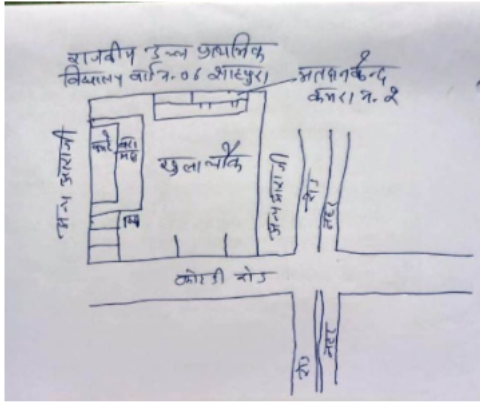 राजकीय उच्च प्राथमिक
विद्यालय वार्ड न. 06 शाहपुरा
मतदान केन्द्र
कमरा न. 2
अन्य आराजी
कमरे
बरामदा
खुला चौक
अन्य आराजी
रोड
नहर
कोठी रोड
रोड
नहर